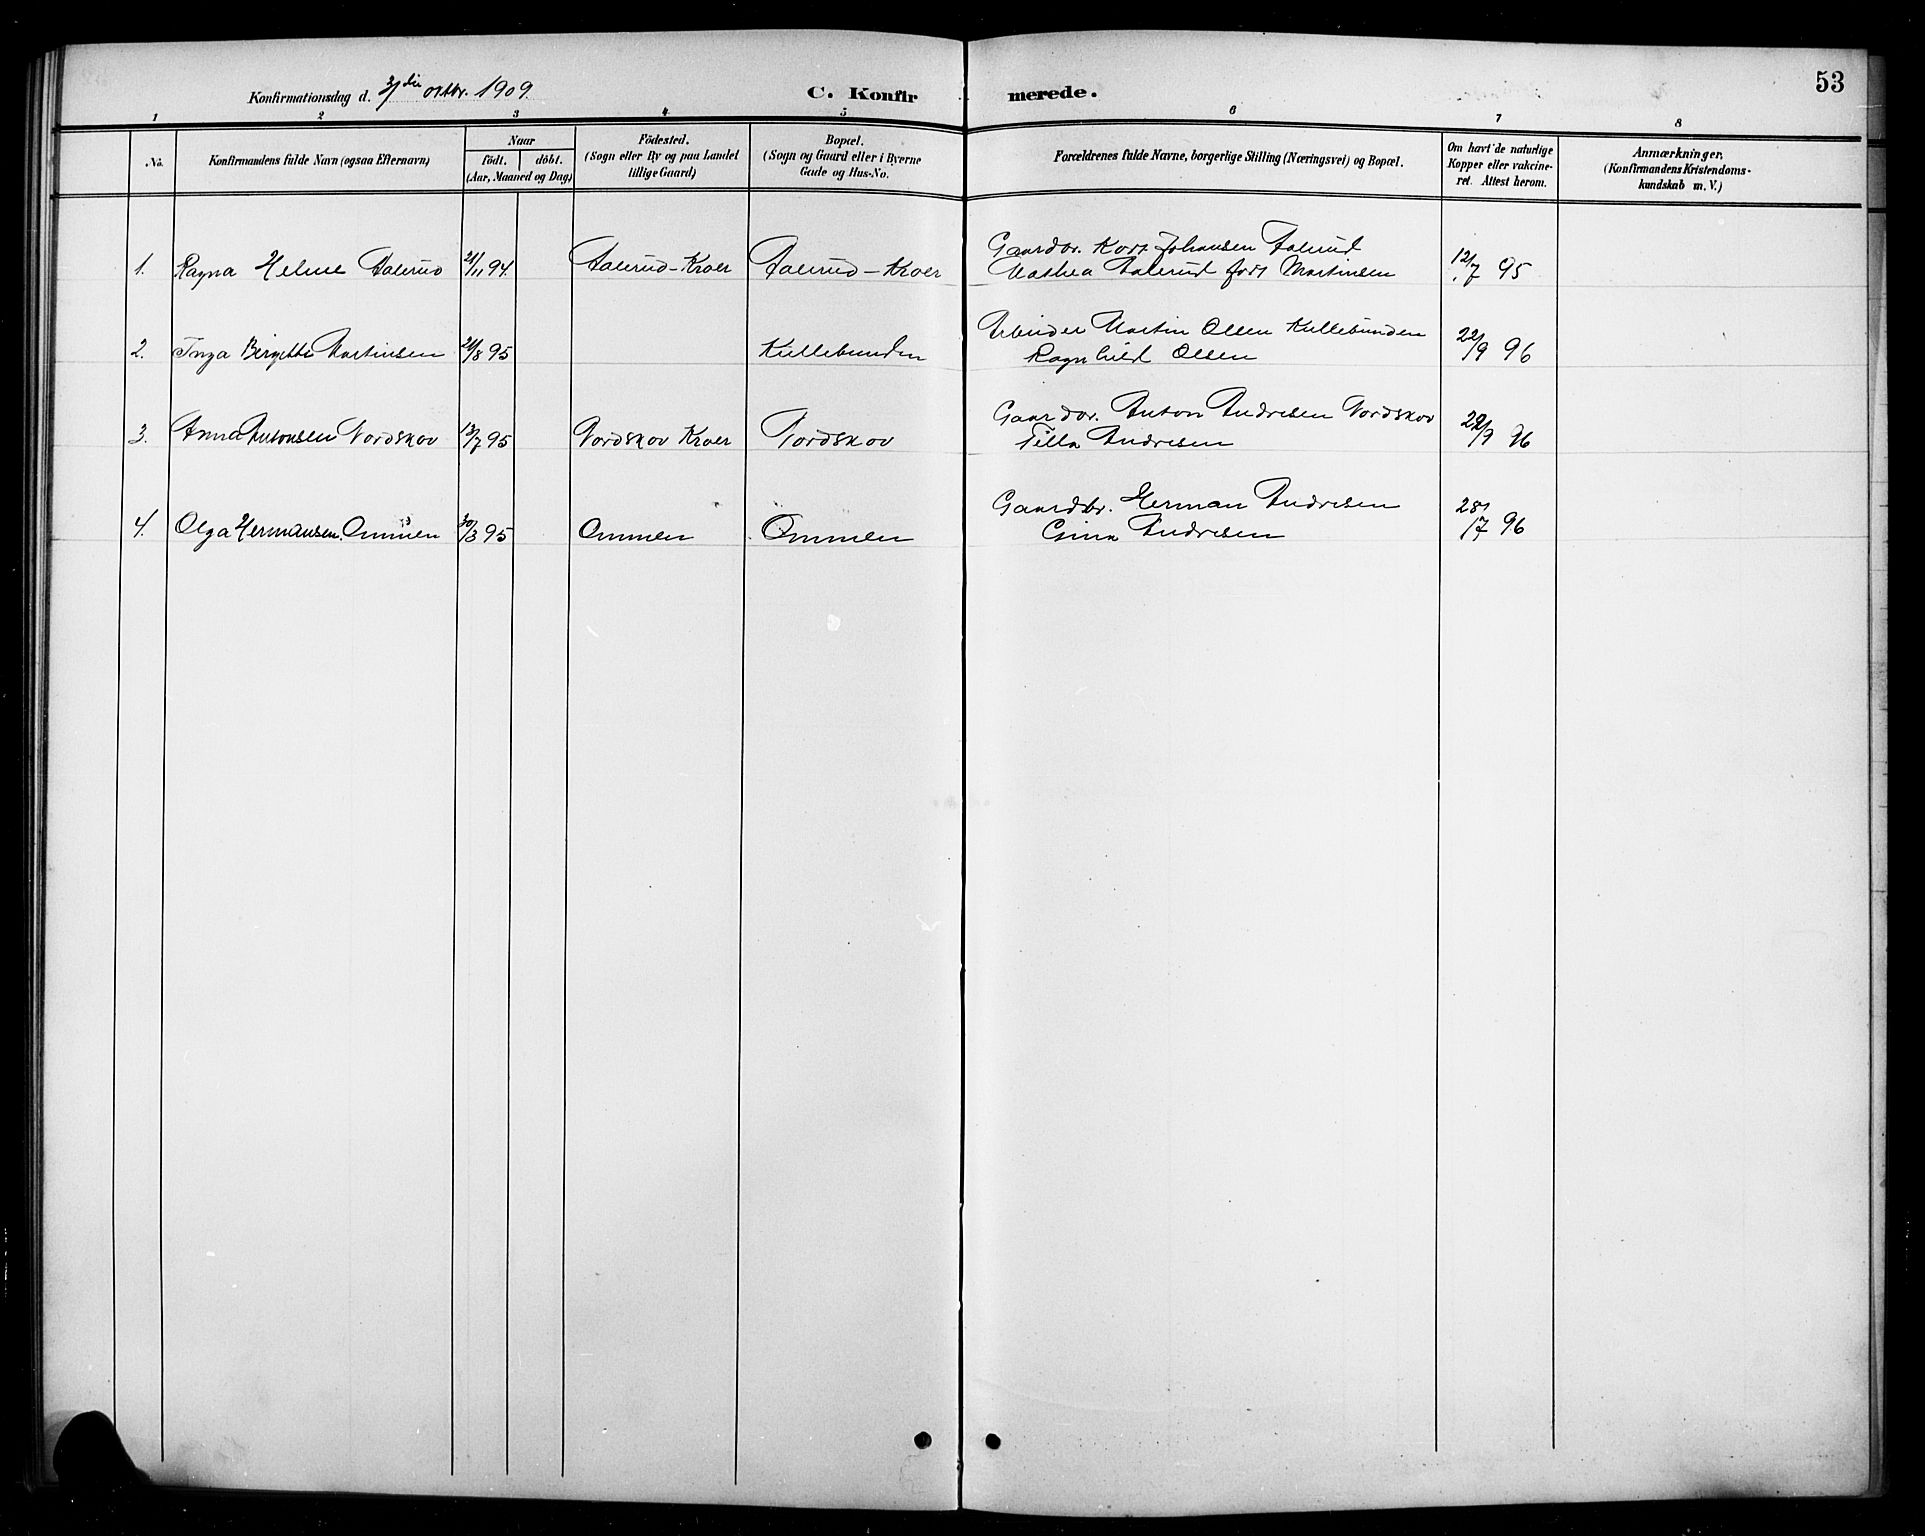 53
Konfirmationsdag d. 3/die oktbr. 1909.
C. Konfirmerede.
1 2 3 4 5 6 7 8
No.
Konfirmandens fulde Navn (ogsaa Efternavn)
Naar
födt. döbt.
(Aar, Maaned og Dag)
Födested.
(Sogn eller By og paa Landet
tillige Gaard)
Bopæl.
(Sogn og Gaard eller i Byerne
Gade og Hus-No.
Forældrenes fulde Navne, borgerlige Stilling (Næringsvei) og Bopæl.
Om havt de naturlige
Kopper eller vakcine-
ret. Attest herom.
Anmærkninger.
(Konfirmandens Kristendoms-
kundskab m. V.)
Gaardbr. Johansen Aalerud
1. Ragna Helene Aalerud 21/11 94. Aalerud-Kroer Aalerud-Kroer Mathea Aalerud født Martinsen 12/7 95
Arbeider Martin Olsen Kullebunden
2. Inga Birgitte Martinsen 21/8 95 Kullebunden Ragnhild Olsen 22/9 96
Gaardbr. Anton Andresen Nordskov
3. Anna Antonsen Nordskov 13/7 95 Nordskov Kroer Nordskov Tilla Andresen 22/9 96
Gaardbr. Herman Andresen
4. Olga Hermansen Ommen 30/3 95 Ommen Ommen Gina Andresen 28/7 96